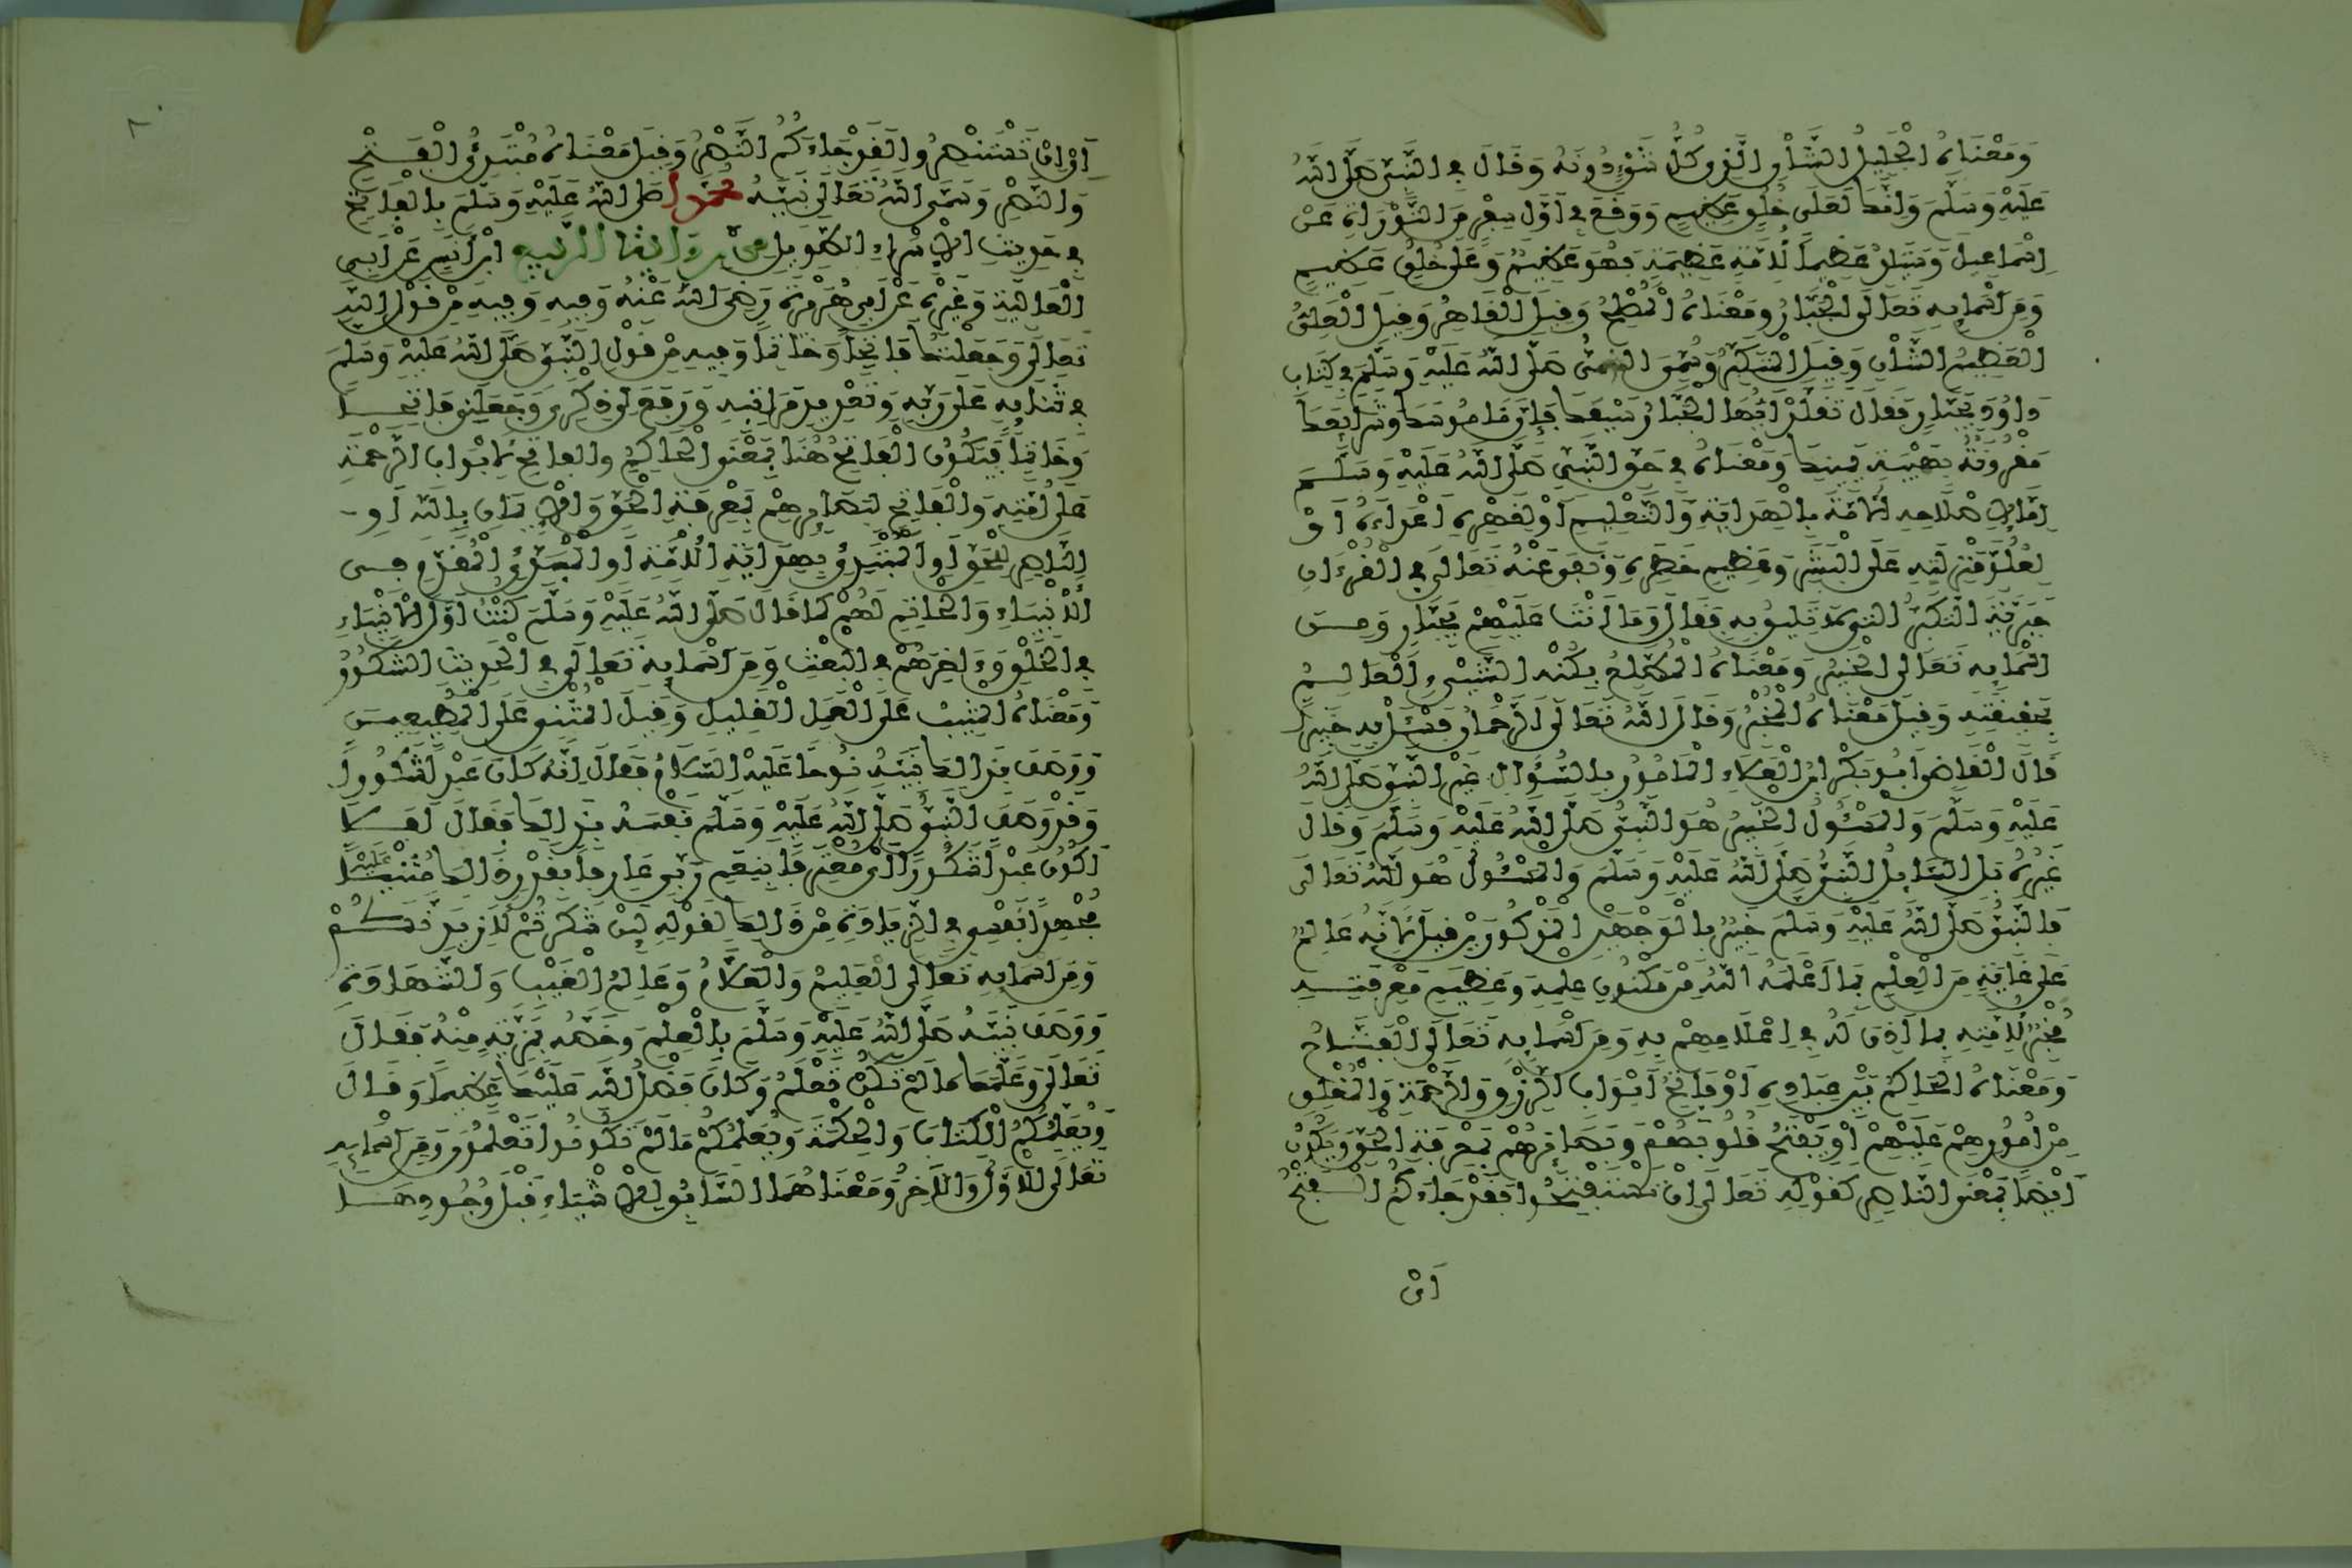 وَمَعْنَاهُ الْجَلِيلُ الشَّأْنِ الَّذِي كُلُّ شَيْءٍ دُونَهُ وَقَالَ فِي النَّبِيِّ صَلَّى اللهُ
عَلَيْهِ وَسَلَّمَ وَإِنَّكَ لَعَلَى خُلُقٍ عَظِيمٍ وَوَقَعَ فِي أَوَّلِ سِفْرٍ مِنَ التَّوْرَاةِ عَنْ
إِسْمَاعِيلَ وَسَيَلِدُ عَظِيمًا لِأُمَّةٍ عَظِيمَةٍ فَهُوَ عَظِيمٌ وَعَلَى خُلُقٍ عَظِيمٍ
وَمِنْ أَسْمَائِهِ تَعَالَى الْجَبَّارُ وَمَعْنَاهُ الْمُصْلِحُ وَقِيلَ الْقَاهِرُ وَقِيلَ الْعَلِيُّ
الْعَظِيمُ الشَّأْنِ وَقِيلَ الْمُتَكَبِّرُ وَسُمِّيَ النَّبِيُّ صَلَّى اللهُ عَلَيْهِ وَسَلَّمَ فِي كِتَابِ
دَاوُودَ بِجَبَّارٍ فَقَالَ تَقَلَّدْ أَيُّهَا الْجَبَّارُ سَيْفَكَ فَإِنَّ نَامُوسَكَ وَشَرَائِعَكَ
مَقْرُونَةٌ بِهَيْبَةِ يَمِينِكَ وَمَعْنَاهُ فِي حَقِّ النَّبِيِّ صَلَّى اللهُ عَلَيْهِ وَسَلَّمَ
إِمَّا لِإِصْلَاحِهِ الْأُمَّةَ بِالْهِدَايَةِ وَالتَّعْلِيمِ أَوْ لِقَهْرِهِ أَعْدَاءَهُ أَوْ
لِعُلُوِّ مَنْزِلَتِهِ عَلَى الْبَشَرِ وَعَظِيمِ خَطَرِهِ وَنَفَى عَنْهُ تَعَالَى فِي الْقُرْءَانِ
جَبْرِيَّةَ التَّكَبُّرِ الَّتِي لَا تَلِيقُ بِهِ فَقَالَ وَمَا أَنْتَ عَلَيْهِمْ بِجَبَّارٍ وَمِنَ
أَسْمَائِهِ تَعَالَى الْخَبِيرُ وَمَعْنَاهُ الْمُطَّلِعُ بِكُنْهِ الشَّيْءِ الْعَالِمُ
بِحَقِيقَتِهِ وَقِيلَ مَعْنَاهُ الْمُخْبِرُ وَقَالَ اللهُ تَعَالَى الرَّحْمَانُ فَسْئَلْ بِهِ خَبِيرًا
قَالَ الْقَاضِي أَبُو بَكْرِ ابْنُ الْعَلَاءِ الْمَأْمُورُ بِالسُّؤَالِ غَيْرُ النَّبِيِّ صَلَّى اللهُ
عَلَيْهِ وَسَلَّمَ وَالْمَسْئُولُ الْخَبِيرُ هُوَ النَّبِيُّ صَلَّى اللهُ عَلَيْهِ وَسَلَّمَ وَقَالَ
غَيْرُهُ بَلِ السَّائِلُ النَّبِيُّ صَلَّى اللهُ عَلَيْهِ وَسَلَّمَ وَالْمَسْئُولُ هُوَ اللهُ تَعَالَى
فَالنَّبِيُّ صَلَّى اللهُ عَلَيْهِ وَسَلَّمَ خَبِيرٌ بِالْوَجْهَيْنِ الْمَذْكُورَيْنِ قِيلَ لِأَنَّهُ عَالِمٌ
عَلَى غَايَةٍ مِنَ الْعِلْمِ بِمَا أَعْلَمَهُ اللهُ مِنْ مَكْنُونِ عِلْمِهِ وَعَظِيمِ مَعْرِفَتِهِ
مُخْبِرٌ لِأُمَّتِهِ بِمَا أَذِنَ لَهُ فِي إِعْلَامِهِمْ بِهِ وَمِنْ أَسْمَائِهِ تَعَالَى الْفَتَّاحُ
وَمَعْنَاهُ الْحَاكِمُ بَيْنَ عِبَادِهِ أَوْ فَاتِحُ أَبْوَابِ الرِّزْقِ وَالرَّحْمَةِ وَالْمُنْغَلِقِ
مِنْ أُمُورِهِمْ عَلَيْهِمْ أَوْ يَفْتَحُ قُلُوبَهُمْ وَبَصَائِرَهُمْ بِمَعْرِفَةِ الْحَقِّ وَيَكُونُ
أَيْضًا بِمَعْنَى النَّاصِرِ كَقَوْلِهِ تَعَالَى إِنْ تَسْتَفْتِحُوا فَقَدْ جَاءَكُمُ الْفَتْحُ
أَيْ
٨٠
أَيْ إِنْ تَسْتَنْصِرُوا فَقَدْ جَاءَكُمُ النَّصْرُ وَقِيلَ مَعْنَاهُ مُبْتَدِئُ الْفَتْحِ
وَالنَّصْرِ وَسَمَّى اللهُ تَعَالَى نَبِيَّهُ مُحَمَّدًا صَلَّى اللهُ عَلَيْهِ وَسَلَّمَ بِالْفَاتِحِ
فِي حَدِيثِ الْإِسْرَاءِ الطَّوِيلِ مِنْ رِوَايَةِ الرَّبِيعِ ابْنِ أَنَسٍ عَنْ أَبِي
الْعَالِيَةِ وَغَيْرِهِ عَنْ أَبِي هُرَيْرَةَ رَضِيَ اللهُ عَنْهُ وَفِيهِ وَفِيهِ مِنْ قَوْلِ اللهِ
تَعَالَى وَجَعَلْتُكَ فَاتِحًا وَخَاتِمًا وَفِيهِ مِنْ قَوْلِ النَّبِيِّ صَلَّى اللهُ عَلَيْهِ وَسَلَّمَ
فِي ثَنَائِهِ عَلَى رَبِّهِ وَتَعْدِيدِ مَرَاتِبِهِ وَرَفَعَ لِي ذِكْرِي وَجَعَلَنِي فَاتِحًا
وَخَاتِمًا فَيَكُونُ الْفَاتِحُ هُنَا بِمَعْنَى الْحَاكِمِ وَالْفَاتِحِ لِأَبْوَابِ الرَّحْمَةِ
عَلَى أُمَّتِهِ وَالْفَاتِحِ لِبَصَائِرِهِمْ بِمَعْرِفَةِ الْحَقِّ وَالْإِيمَانِ بِاللهِ أَوِ
النَّاصِرِ لِلْحَقِّ أَوِ الْمُبْتَدِئِ بِهِدَايَةِ الْأُمَّةِ أَوِ الْمُبَدَّى الْمُقَدَّمِ فِي
الْأَنْبِيَاءِ وَالْخَاتِمِ لَهُمْ كَمَا قَالَ صَلَّى اللهُ عَلَيْهِ وَسَلَّمَ كُنْتُ أَوَّلَ الْأَنْبِيَاءِ
فِي الْخَلْقِ وَءَاخِرَهُمْ فِي الْبَعْثِ وَمِنْ أَسْمَائِهِ تَعَالَى فِي الْحَدِيثِ الشَّكُورُ
وَمَعْنَاهُ الْمُثِيبُ عَلَى الْعَمَلِ الْقَلِيلِ وَقِيلَ الْمُثْنِي عَلَى الْمُطِيعِينَ
وَوَصَفَ بِذَالِكَ نَبِيَّهُ نُوحًا عَلَيْهِ السَّلَامُ فَقَالَ إِنَّهُ كَانَ عَبْدًا شَكُورًا
وَقَدْ وَصَفَ النَّبِيُّ صَلَّى اللهُ عَلَيْهِ وَسَلَّمَ نَفْسَهُ بِذَالِكَ فَقَالَ أَفَلَا
أَكُونُ عَبْدًا شَكُورًا أَيْ مُعْتَرِفًا بِنِعَمِ رَبِّي عَارِفًا بِقَدْرِ ذَالِكَ مُثْنِيًا عَلَيْهِ
مُجْهِدًا نَفْسِي فِي الزِّيَادَةِ مِنْ ذَالِكَ لِقَوْلِهِ لَئِنْ شَكَرْتُمْ لَأَزِيدَنَّكُمْ
وَمِنْ أَسْمَائِهِ تَعَالَى الْعَلِيمُ وَالْعَلَّامُ وَعَالِمُ الْغَيْبِ وَالشَّهَادَةِ
وَوَصَفَ نَبِيَّهُ صَلَّى اللهُ عَلَيْهِ وَسَلَّمَ بِالْعِلْمِ وَخَصَّهُ بِمَزِيَّةٍ مِنْهُ فَقَالَ
تَعَالَى وَعَلَّمَكَ مَا لَمْ تَكُنْ تَعْلَمُ وَكَانَ فَضْلُ اللهِ عَلَيْكَ عَظِيمًا وَقَالَ
وَيُعَلِّمُكُمُ الْكِتَابَ وَالْحِكْمَةَ وَيُعَلِّمُكُمْ مَا لَمْ تَكُونُوا تَعْلَمُونَ وَمِنْ أَسْمَائِهِ
تَعَالَى الْأَوَّلُ وَالْآخِرُ وَمَعْنَاهُمَا السَّابِقُ لِلْأَشْيَاءِ قَبْلَ وُجُودِهَا